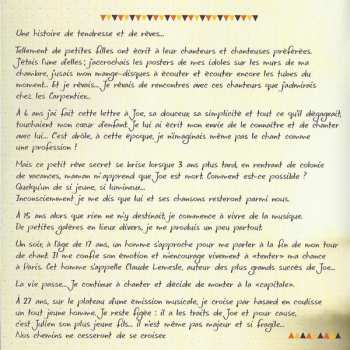 Une histoire de tendresse et de rêves...
Tellement de petites filles ont écrit à leur chanteurs et chanteuses préférées.
J'étais l'une d'elles ; j'accrochais les posters de mes idoles sur les murs de ma
chambre, j'usais mon mange-disques à écouter et écouter encore les tubes du
moment... Et je rêvais... Je rêvais de rencontres avec ces chanteurs que j'admirais
chez les Carpentier...
A 6 ans j'ai fait cette lettre à Joe, sa douceur, sa simplicité et tout ce qu'il dégageait,
touchaient mon cœur d'enfant. Je lui ai écrit mon envie de le connaître et de chanter
avec lui... C'est drôle, à cette époque, je n'imaginais même pas le chant comme
une profession !
Mais ce petit rêve secret se brise lorsque 3 ans plus tard, en rentrant de colonie
de vacances, maman m'apprend que Joe est mort. Comment est-ce possible ?
Quelqu'un de si jeune, si lumineux...
Inconsciemment je me dis que lui et ses chansons resteront parmi nous.
A 15 ans alors que rien ne m'y destinait, je commence à vivre de la musique.
De petites galères en lieux divers, je me produis un peu partout.
Un soir, à l'âge de 17 ans, un homme s'approche pour me parler à la fin de mon tour
de chant. Il me confie son émotion et m'encourage vivement à «tenter» ma chance
à Paris. Cet homme s'appelle Claude Lemesle, auteur des plus grands succès de Joe...
La vie passe... Je continue à chanter et décide de monter à la «capitale».
A 22 ans, sur le plateau d'une émission musicale, je croise par hasard en coulisse
un tout jeune homme. Je reste figée : il a les traits de Joe et pour cause,
c'est Julien son plus jeune fils... il n'est même pas majeur et si fragile...
Nos chemins ne cesseront de se croiser.